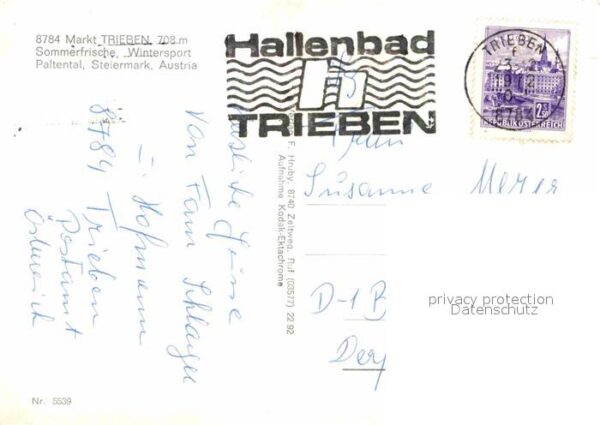 8784 Markt TRIEBEN, 708 m
Sommerfrische, Wintersport
Paltental, Steiermark, Austria
Hallenbad
TRIEBEN
TRIEBEN
2.50
REPUBLIK ÖSTERREICH
F. Hruby, 8740 Zeltweg, Ruf (03577) 22 92
Aufnahme Kodak-Ektachrome
Von Fam
Hofmann
8784 Trieben
Postamt
Österreich
Susanne
D-1 B
privacy protection
Datenschutz
Nr. 5539